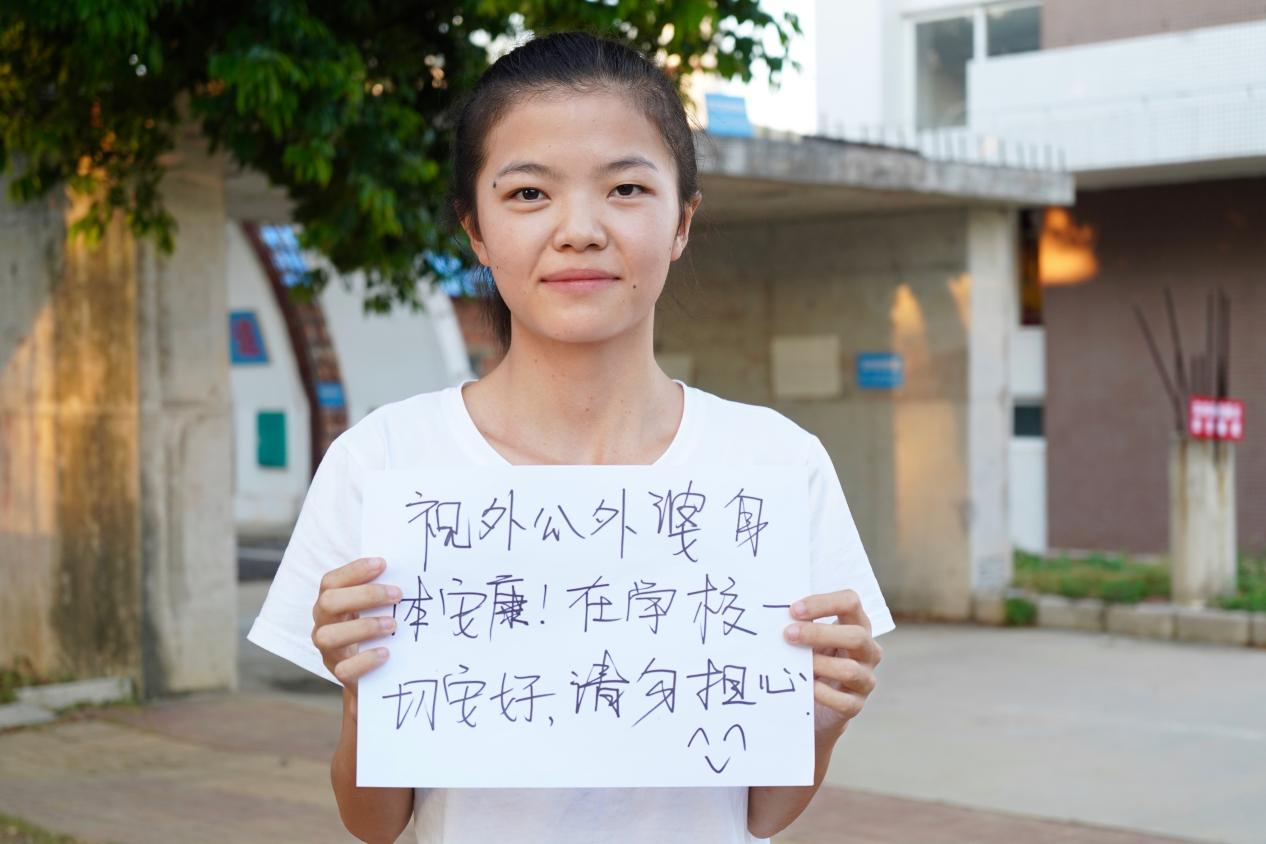 祝外公外婆身
体安康！在学校一
切安好，请勿担心.